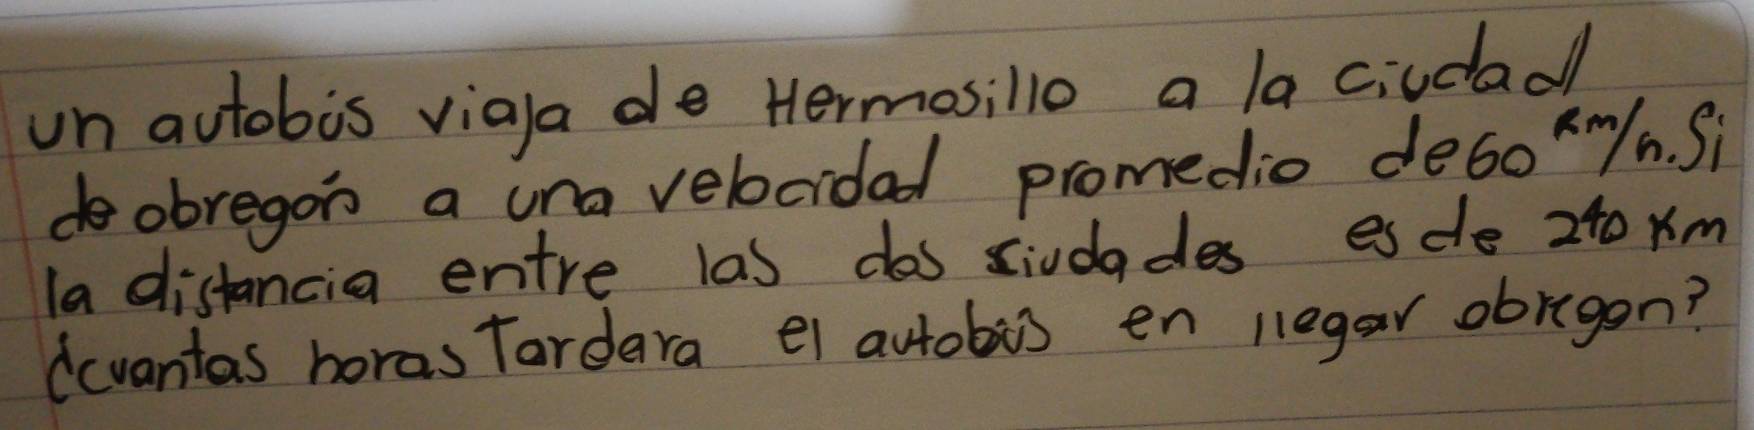 un autobús viaja de Hermosillo a la ciudad
de obregón a una velocidad promedio de 60 km/h. Si
la distancia entre las dos ciudades es de 240 km
¿cuantas horas Tardara el autobús en llegar obregon?